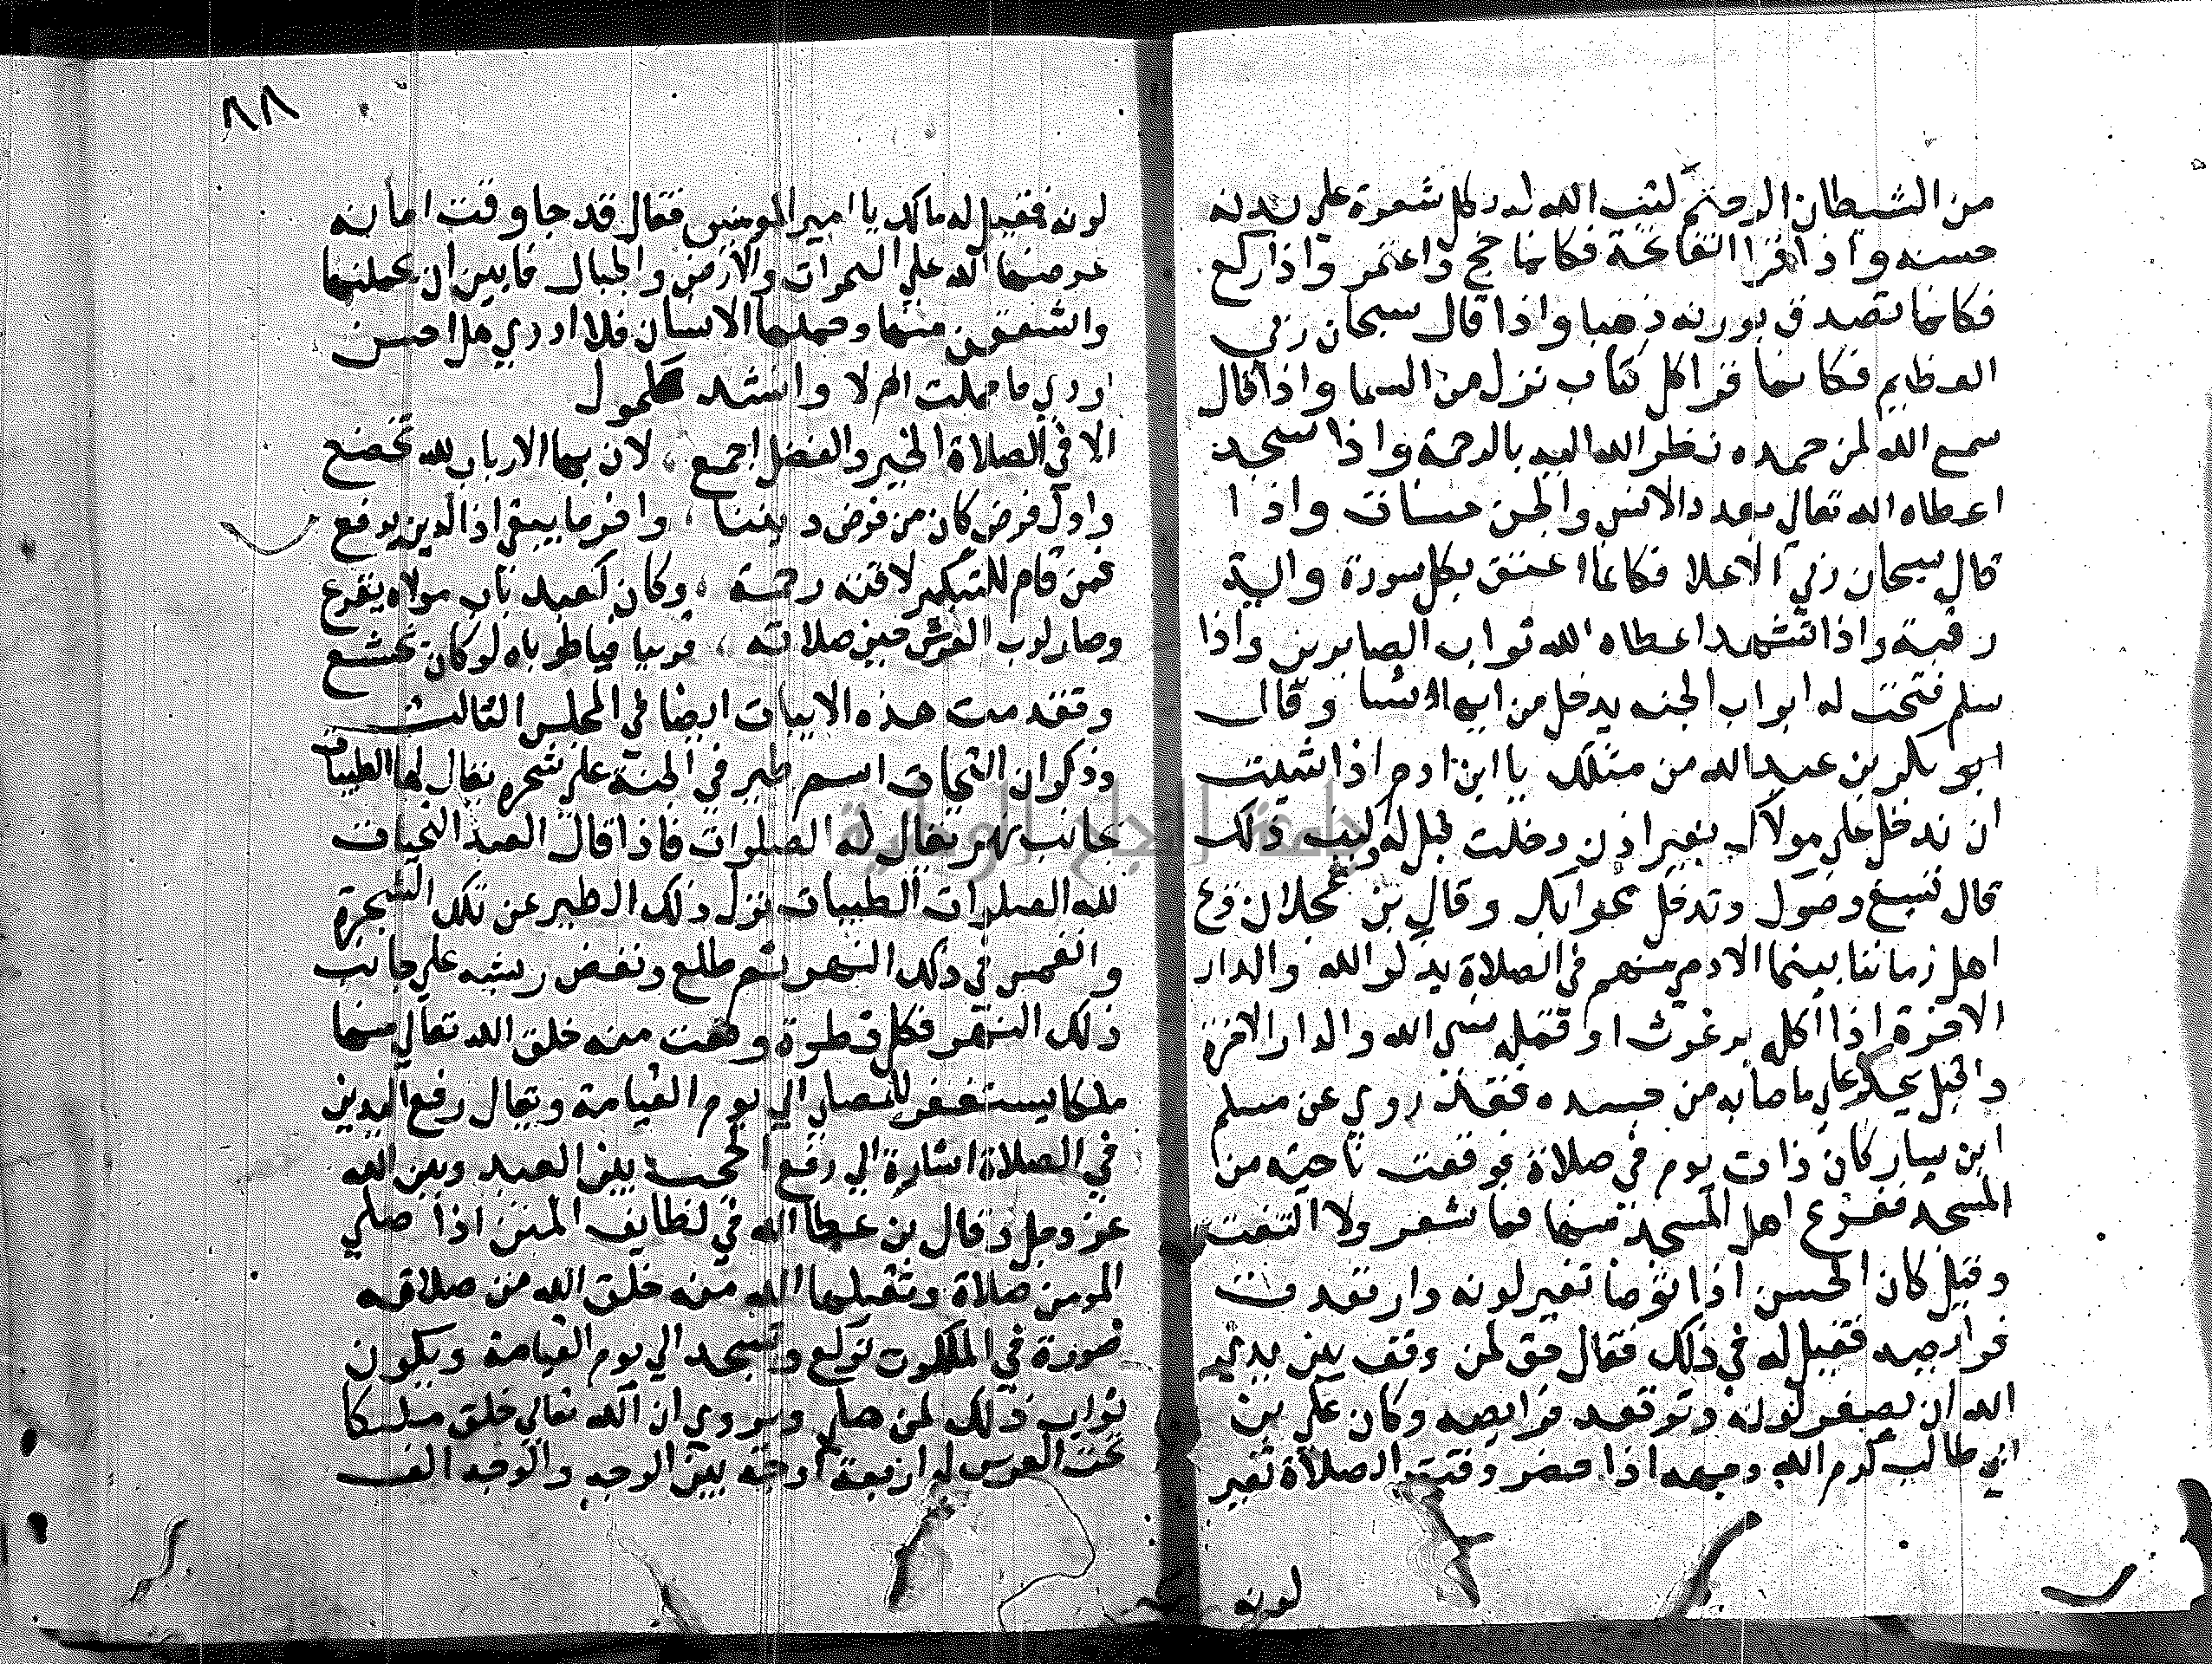 من الشيطان الرجيم كتب الله له بكل شعرة علي بدنه
حسنه واذا قرا الفاتحة فكانما حج واعتمر واذا ركع
فكانما تصدق بوزنه ذهبا واذا قال سبحان ربي
العظيم فكانما قرا كل كتاب نزل من السما واذا قال
سمع الله لمن حمده نظر الله اليه بالرحمة واذا سجد
اعطاه الله تعالي بعدد الانس والجن حسنات واذا
قال سبحان ربي الاعلا فكانما اعتق بكل سورة واية
رقبة واذا تشهد اعطاه الله ثواب الصابرين واذا
سلم فتحت له ابواب الجنه يدخل من ايها شا وقال
ابو بكر بن عبد الله من مثلك يا ابن ادم اذا شيت
ان تدخل علي مولاك بغير اذن دخلت قيل له وكيف ذلك
قال تسبغ وضوك وتدخل محرابك وقال بن عجلان في
اهل زماننا بينما الادمي منهم في الصلاة يذكر الله والدار
الاخرة اذا اكله برغوث او قمله نسي الله والدار الاخرة
واقبل يحك علي ما صابه من جسده فقد روي عن مسلم
ابن يسار كان ذات يوم في صلاة فوقعت ناحيته من
المسجد ففزع اهل المسجد منها فما شعر ولا التفت
وقيل كان الحسن اذا توضا تغير لونه وارتعدت
فرايصه فقيل له في ذلك فقال حق لمن وقف بين يدي
الله ان يصفر لونه وترتعد فرايصه وكان علي بن
ابي طالب كرم الله وجهه اذا حضر وقت الصلاة تغير
لونه
٨٨
لونه فقيل له مالك يا امير المومنين فقال قد جا وقت امانه
عرضها الله علي السموات والارض والجبال فابين ان يحملنها
واشفقن منها وحملها الانسان فلا ادري هل احسن
اودي ما حملت ام لا وانشد
الا في الصلاة الخير والفضل اجمع ، لان بها الارباب لله تخضع
واول فرض كان من فرض ديننا ، واخر ما يبقي اذا الدين يرفع
فمن قام للتكبير لاقته رحمة ، وكان كعبد باب مولاه يقرع
وصار لرب العرش حين صلاته ، قريبا فيا طوباه لو كان يخشع
وتقدمت هذه الابيات ايضا في المجلس الثالث
وذكر ان التحيات اسم طير في الجنة علي شجره يقال لها الطيبات
بجانب نهر يقال له الصلوات فاذا قال العبد التحيات
لله الصلوات الطيبات نزل ذلك الطير عن تلك الشجرة
وانغمس في ذلك النهر ثم طلع ونفض ريشه علي جانب
ذلك النهر فكل قطرة وقعت منه خلق الله تعالي منها
ملكا يستغفر للمصلي الي يوم القيامة ويقال رفع اليدين
في الصلاة اشارة الي رفع الحجب بين العبد وبين الله
عز وجل وقال بن عطا الله في لطايف المنن اذا صلي
المومن صلاة وتقبلها الله منه خلق الله من صلاته
صورة في الملكوت تركع وتسجد الي يوم القيامة ويكون
ثواب ذلك لمن صلي ويروي ان الله تعالي خلق ملكا
تحت العرش له اربعة اوجه بين الوجه والوجه الف